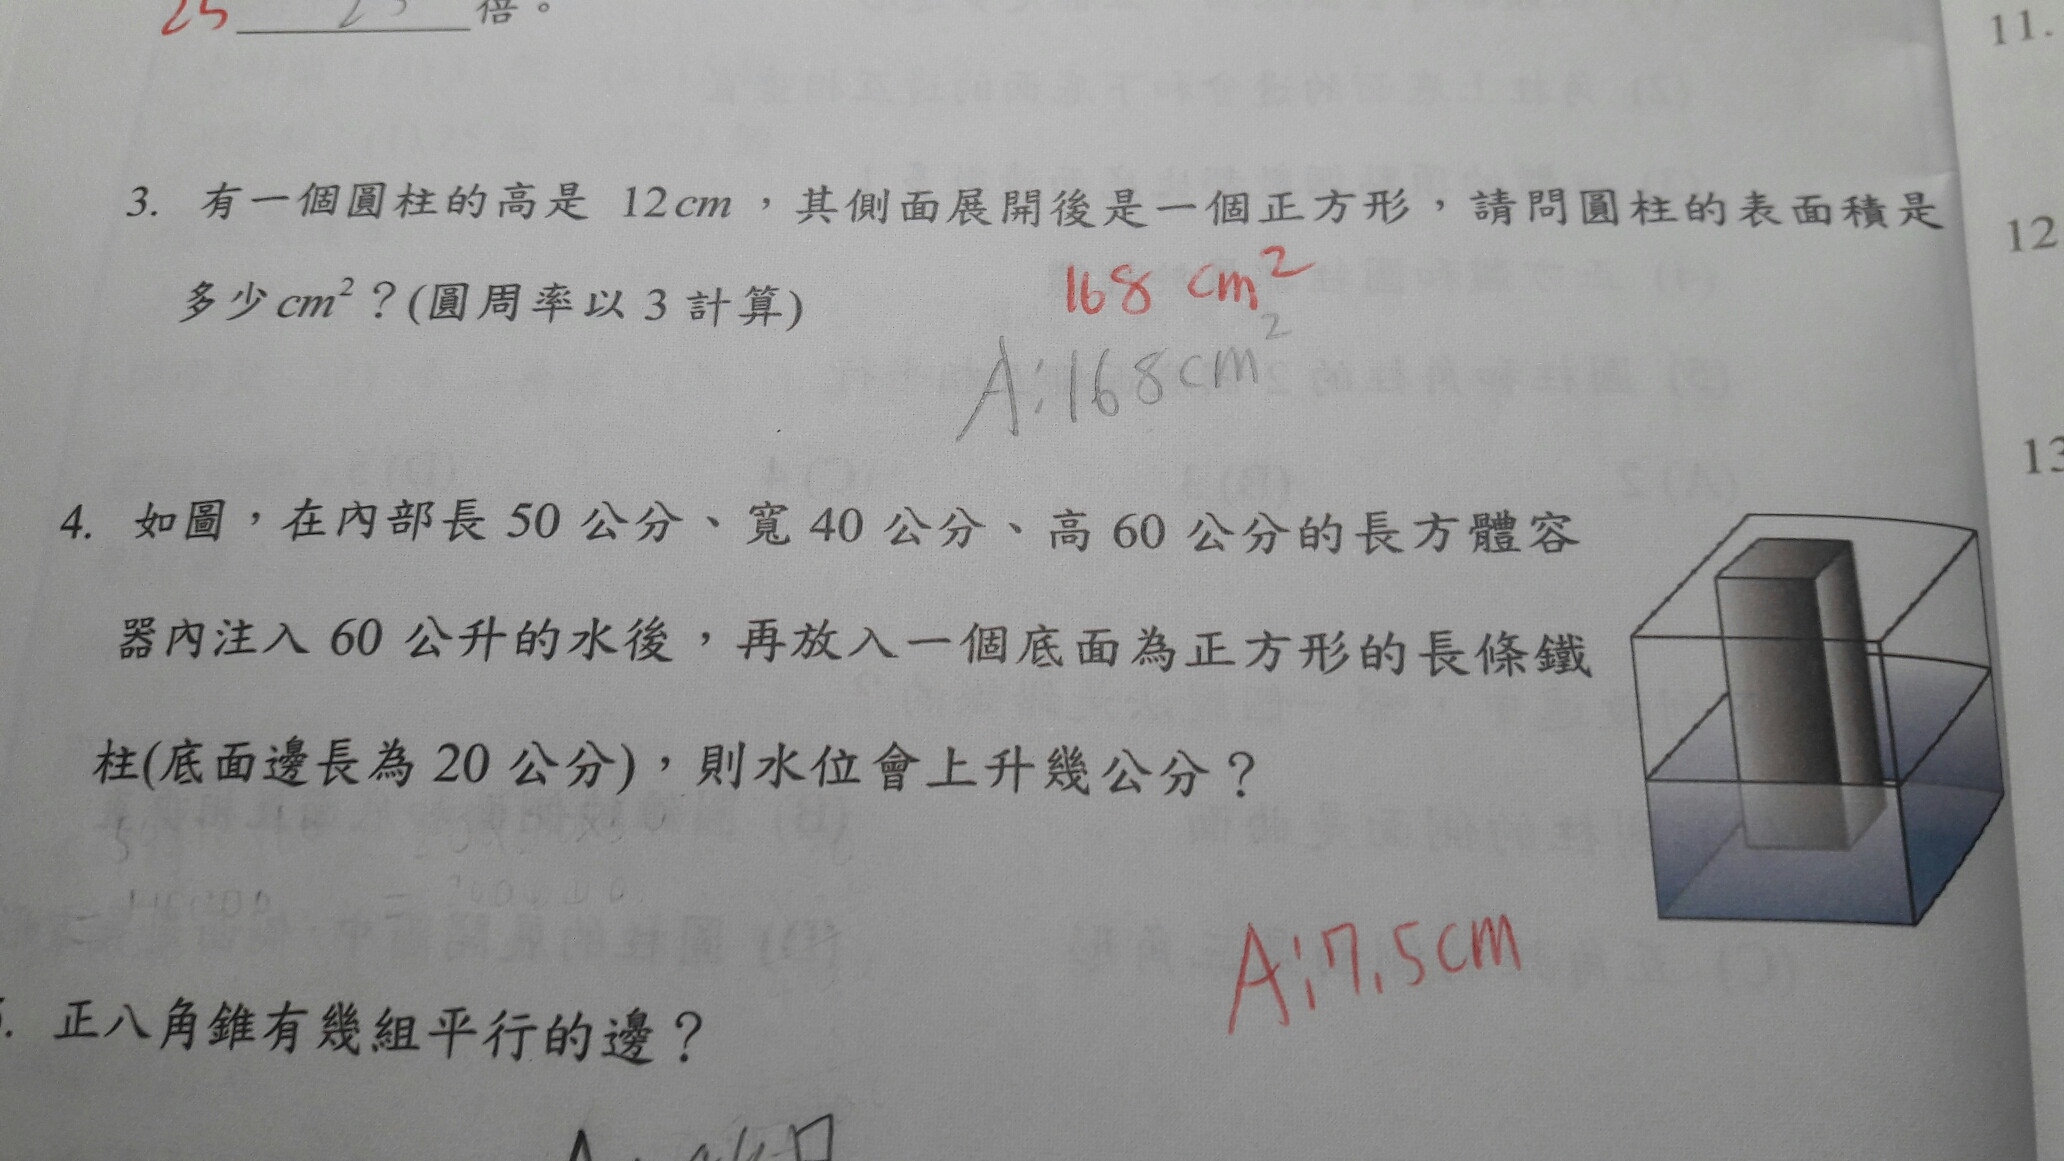 25 25 倍。
3. 有一個圓柱的高是 12cm，其側面展開後是一個正方形，請問圓柱的表面積是
多少cm²？(圓周率以 3 計算)
168 cm²
A:168cm²
4. 如圖，在內部長 50 公分、寬 40 公分、高 60 公分的長方體容
器內注入 60 公升的水後，再放入一個底面為正方形的長條鐵
柱(底面邊長為 20 公分)，則水位會上升幾公分？
A:7.5cm
正八角錐有幾組平行的邊？
11.
12
13